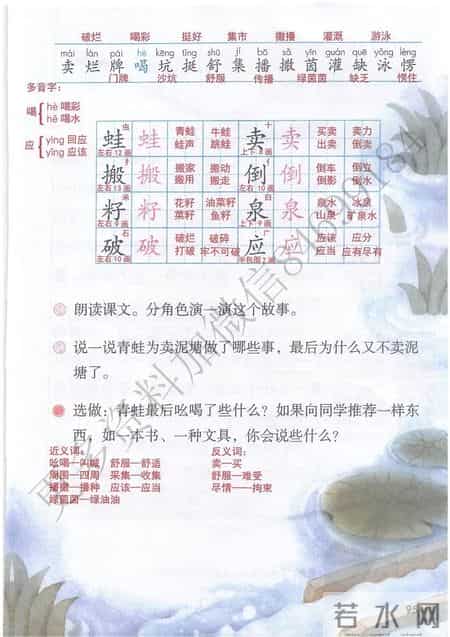 破烂 喝彩 挺好 集市 撒播 灌溉 游泳
mài làn pái hè kēng tǐng shū jí bō sǎ yīn guàn quē yǒng lèng
卖 烂 牌 喝 坑 挺 舒 集 播 撒 茵 灌 缺 泳 愣
门牌 沙坑 舒服 传播 绿茵茵 缺乏 愣住
多音字：
喝 hè 喝彩
hē 喝水
应 yìng 回应
yīng 应该
蛙 蛙 青蛙 牛蛙 卖 卖 买卖 卖力
左右 12画 蛙声 跳蛙 上下 8画 出卖 倒卖
搬 搬 搬家 搬动 倒 倒 倒车 倒立
左右 13画 搬用 搬走 左右 10画 倒影 倒水
籽 籽 花籽 油菜籽 泉 泉 泉水 冰泉
左右 9画 菜籽 鱼籽 上下 9画 山泉 矿泉水
破 破 破烂 破碎 应 应 应该 应分
左右 10画 打破 牢不可破 半包围 7画 应当 应有尽有
朗读课文。分角色演一演这个故事。
说一说青蛙为卖泥塘做了哪些事，最后为什么又不卖泥
塘了。
选做：青蛙最后吆喝了些什么？如果向同学推荐一样东
西，如一本书、一种文具，你会说些什么？
近义词： 反义词：
吆喝—叫喊 舒服—舒适 卖—买
周围—四周 采集—收集 舒服—难受
播撒—播种 应该—应当 尽情—拘束
绿茵茵—绿油油
更多资料加微信84699184
95
若水网